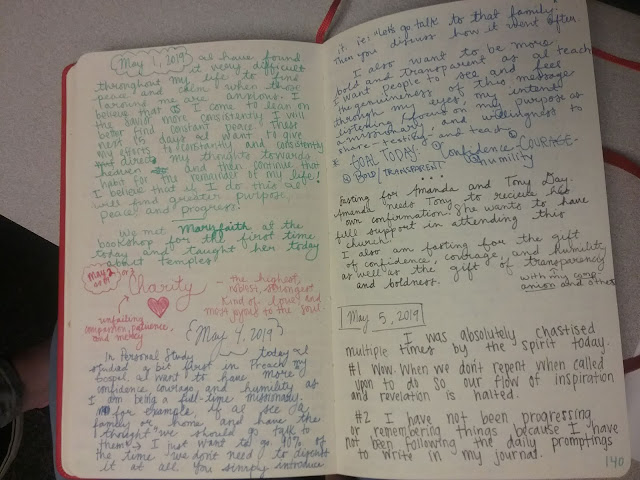 May 1, 2019 I have found
it very difficult
throughout my life to find
peace and calm when those
around me are anxious. I
believe that as I come to lean on
the Savior more consistently I will
better find constant peace. These
next 25 days I want to give
my efforts to constantly and consistently
direct my thoughts towards
heaven and then continue that
habit for the remainder of my life!
I believe that if I do this I
will find greater purpose,
peace, and progress!
We met Maryfaith at the
bookshop for the first time
today and taught her today
about temples!
May 2nd
2019
Charity
- the highest,
noblest, strongest
kind of love and
most joyous to the soul.
unfailing
compassion, patience,
and mercy
May 4, 2019
In Personal Study today I
studied a bit first in Preach My
Gospel. I want to have more
confidence, courage, and humility as
I am being a full-time missionary.
for example, if I see a
family or home and have the
thought "we should go talk to
them." I just want to go. 90% of
the time we don't need to discuss
it at all. You simply introduce
it. ie: "Lets go talk to that family."
Then you discuss how it went after.
I also want to be more
bold and transparent as I teach
I want people to see and feel
the genuineness of this message
through my eyes, my intent
listening, focus on my purpose as
a missionary and willingness to
share - testify - and teach
* GOAL TODAY: Confidence - COURAGE -
BOLD TRANSPARENT Humility
...
Fasting for Amanda and Tony Day.
Amanda needs Tony to receive his
own confirmation. She wants to have
full support in attending this
church!
I also am fasting for the gift
of confidence, courage, and humility
as well as the gift of transparency
and boldness.
with my comp
anion and others
May 5, 2019
I was absolutely chastised
multiple times by the spirit today.
#1 Wow. When we don't repent when called
upon to do so our flow of inspiration
and revelation is halted.
#2 I have not been progressing
or remembering things because I have
not been following the daily promptings
to write in my journal.
140